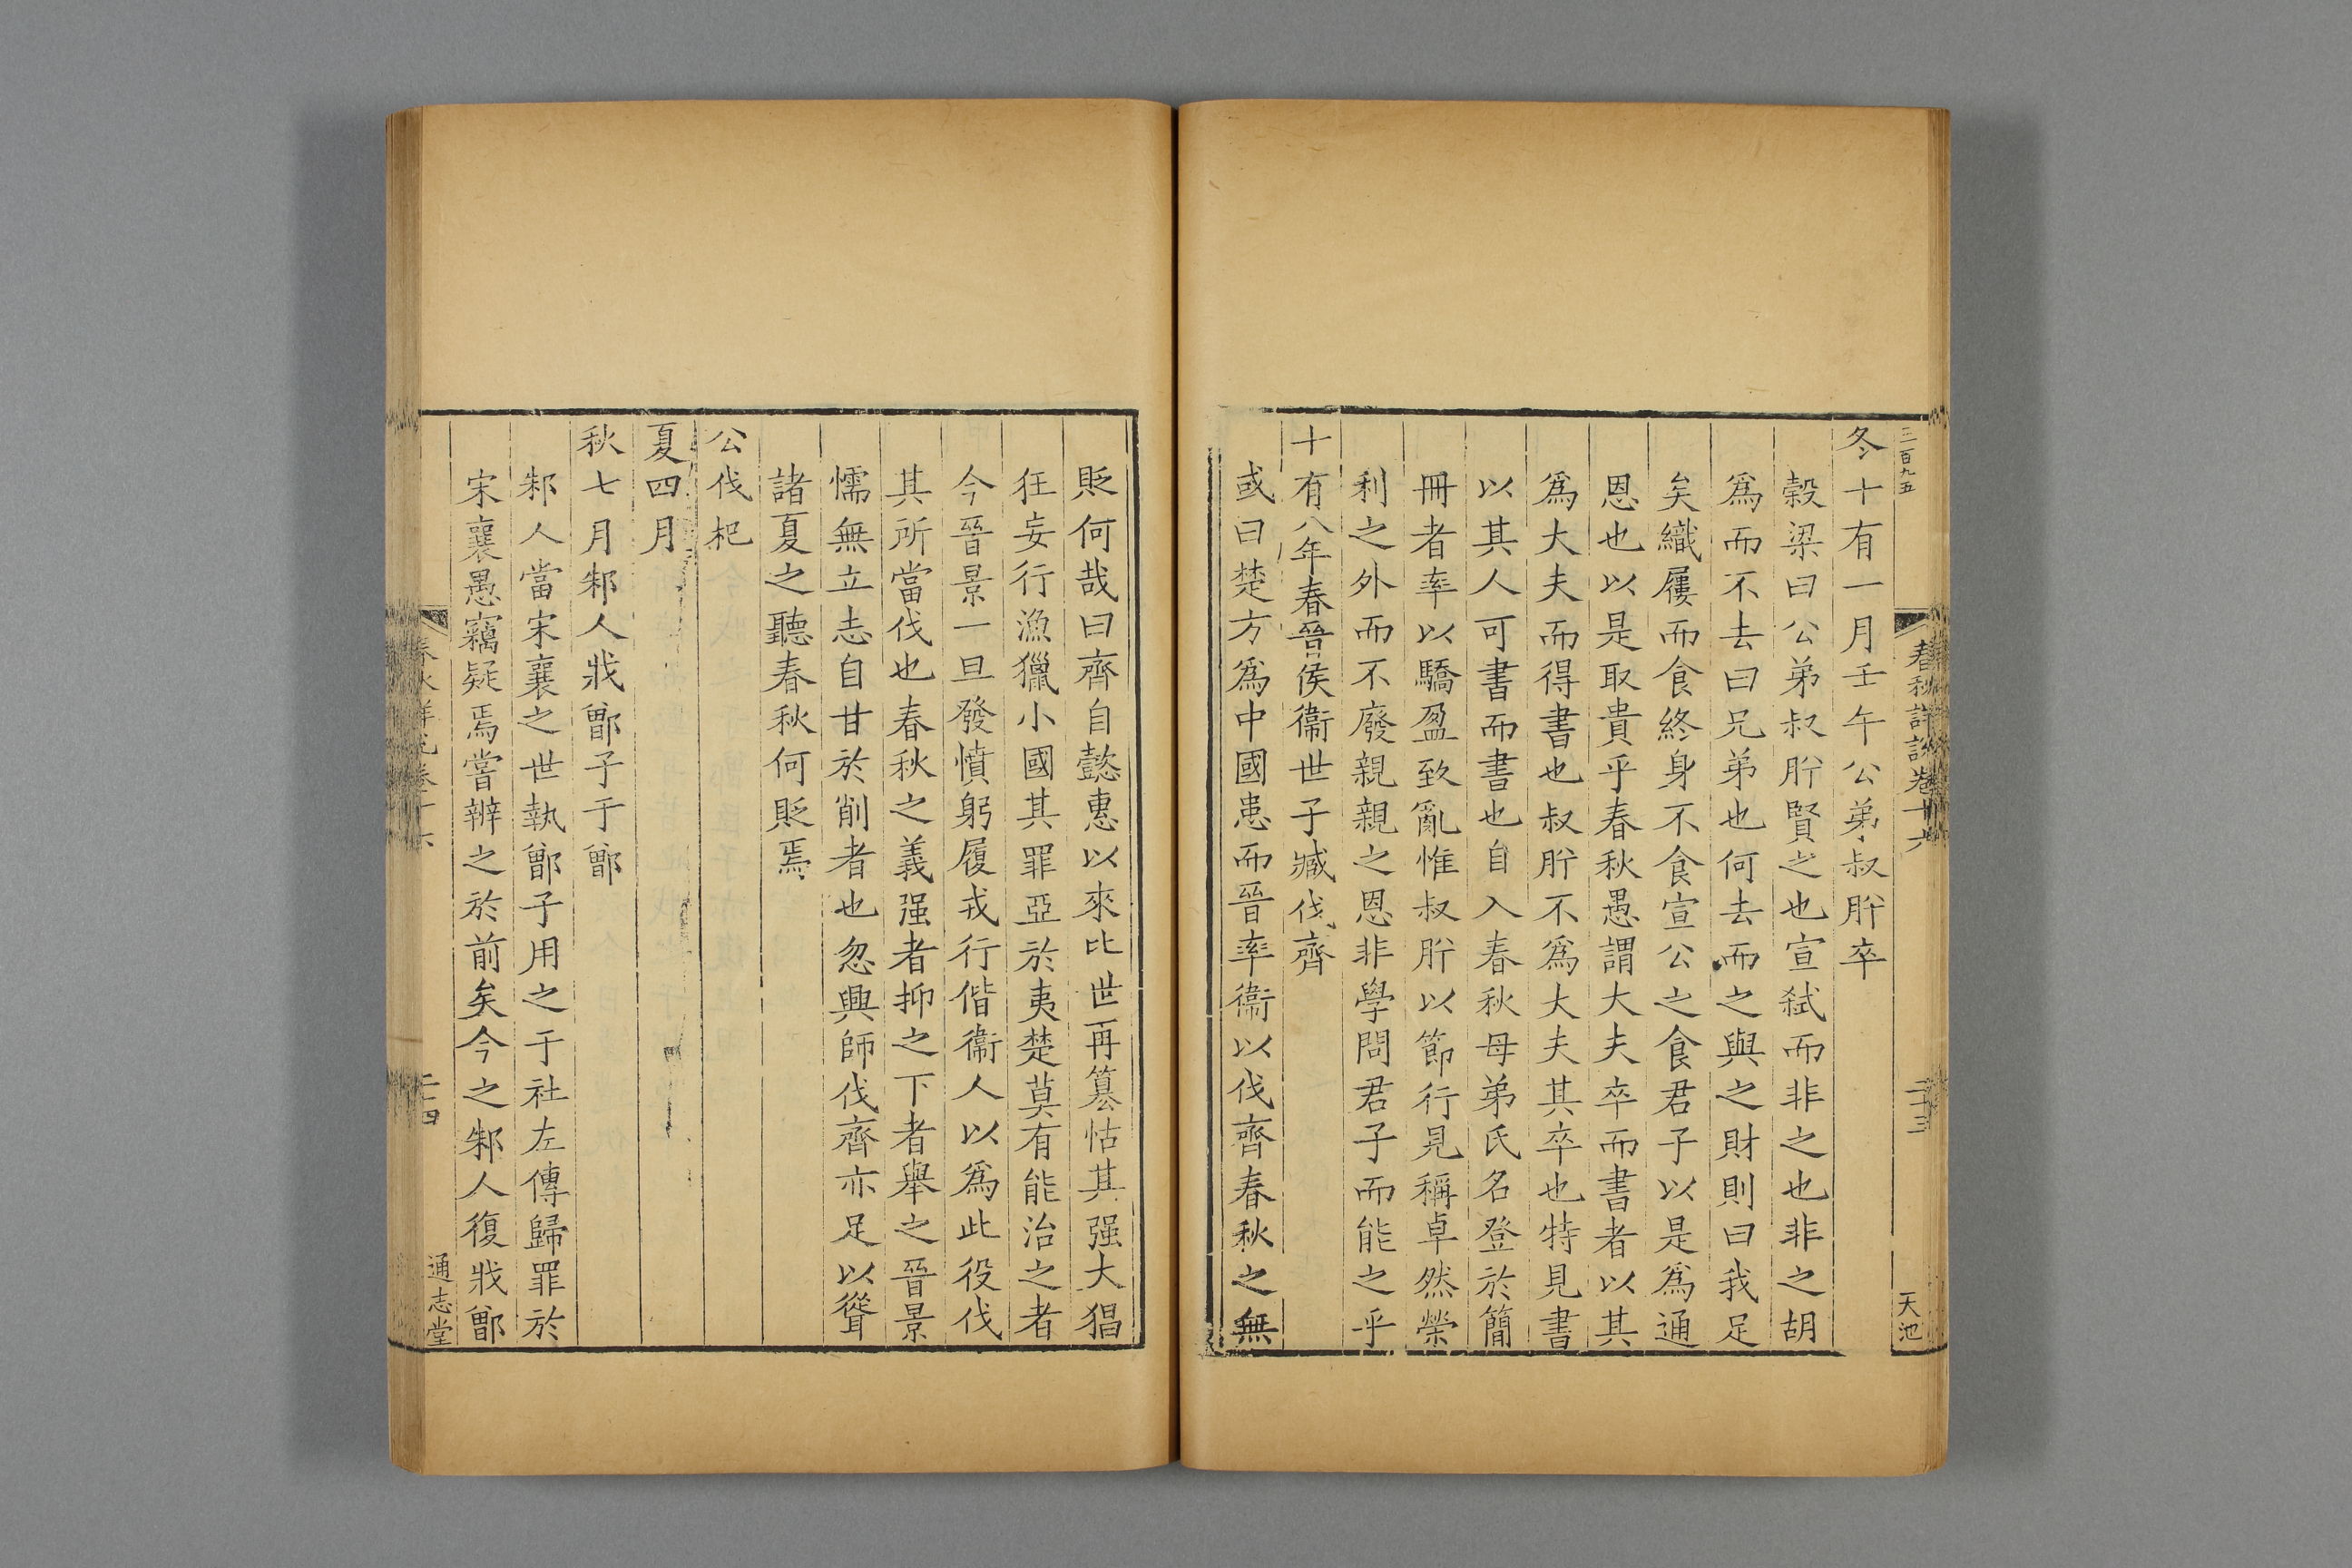 三百九五
春秋詳說卷十六
二十三
天池
冬十有一月壬午公弟叔肸卒
榖梁曰公弟叔肸賢之也宣弑而非之也非之胡
爲而不去曰兄弟也何去而之與之財則曰我足
矣織屨而食終身不食宣公之食君子以是爲通
恩也以是取貴乎春秋愚謂大夫卒而書者以其
爲大夫而得書也叔肸不爲大夫其卒也特見書
以其人可書而書也自入春秋母弟氏名登於簡
冊者率以驕盈致亂惟叔肸以節行見稱卓然榮
利之外而不廢親親之恩非學問君子而能之乎
十有八年春晉侯衞世子臧伐齊
或曰楚方爲中國患而晉率衞以伐齊春秋之無
貶何哉曰齊自懿惠以來比世再簒怙其强大猖
狂妄行漁獵小國其罪亞於夷楚莫有能治之者
今晉景一旦發憤躬履戎行偕衞人以爲此役伐
其所當伐也春秋之義强者抑之下者舉之晉景
懦無立志自甘於削者也忽興師伐齊亦足以聳
諸夏之聽春秋何貶焉
公伐杞
夏四月
秋七月邾人戕鄫子于鄫
邾人當宋襄之世執鄫子用之于社左傳歸罪於
宋襄愚竊疑焉嘗辨之於前矣今之邾人復戕鄫
春秋詳說卷十六
二十四
通志堂